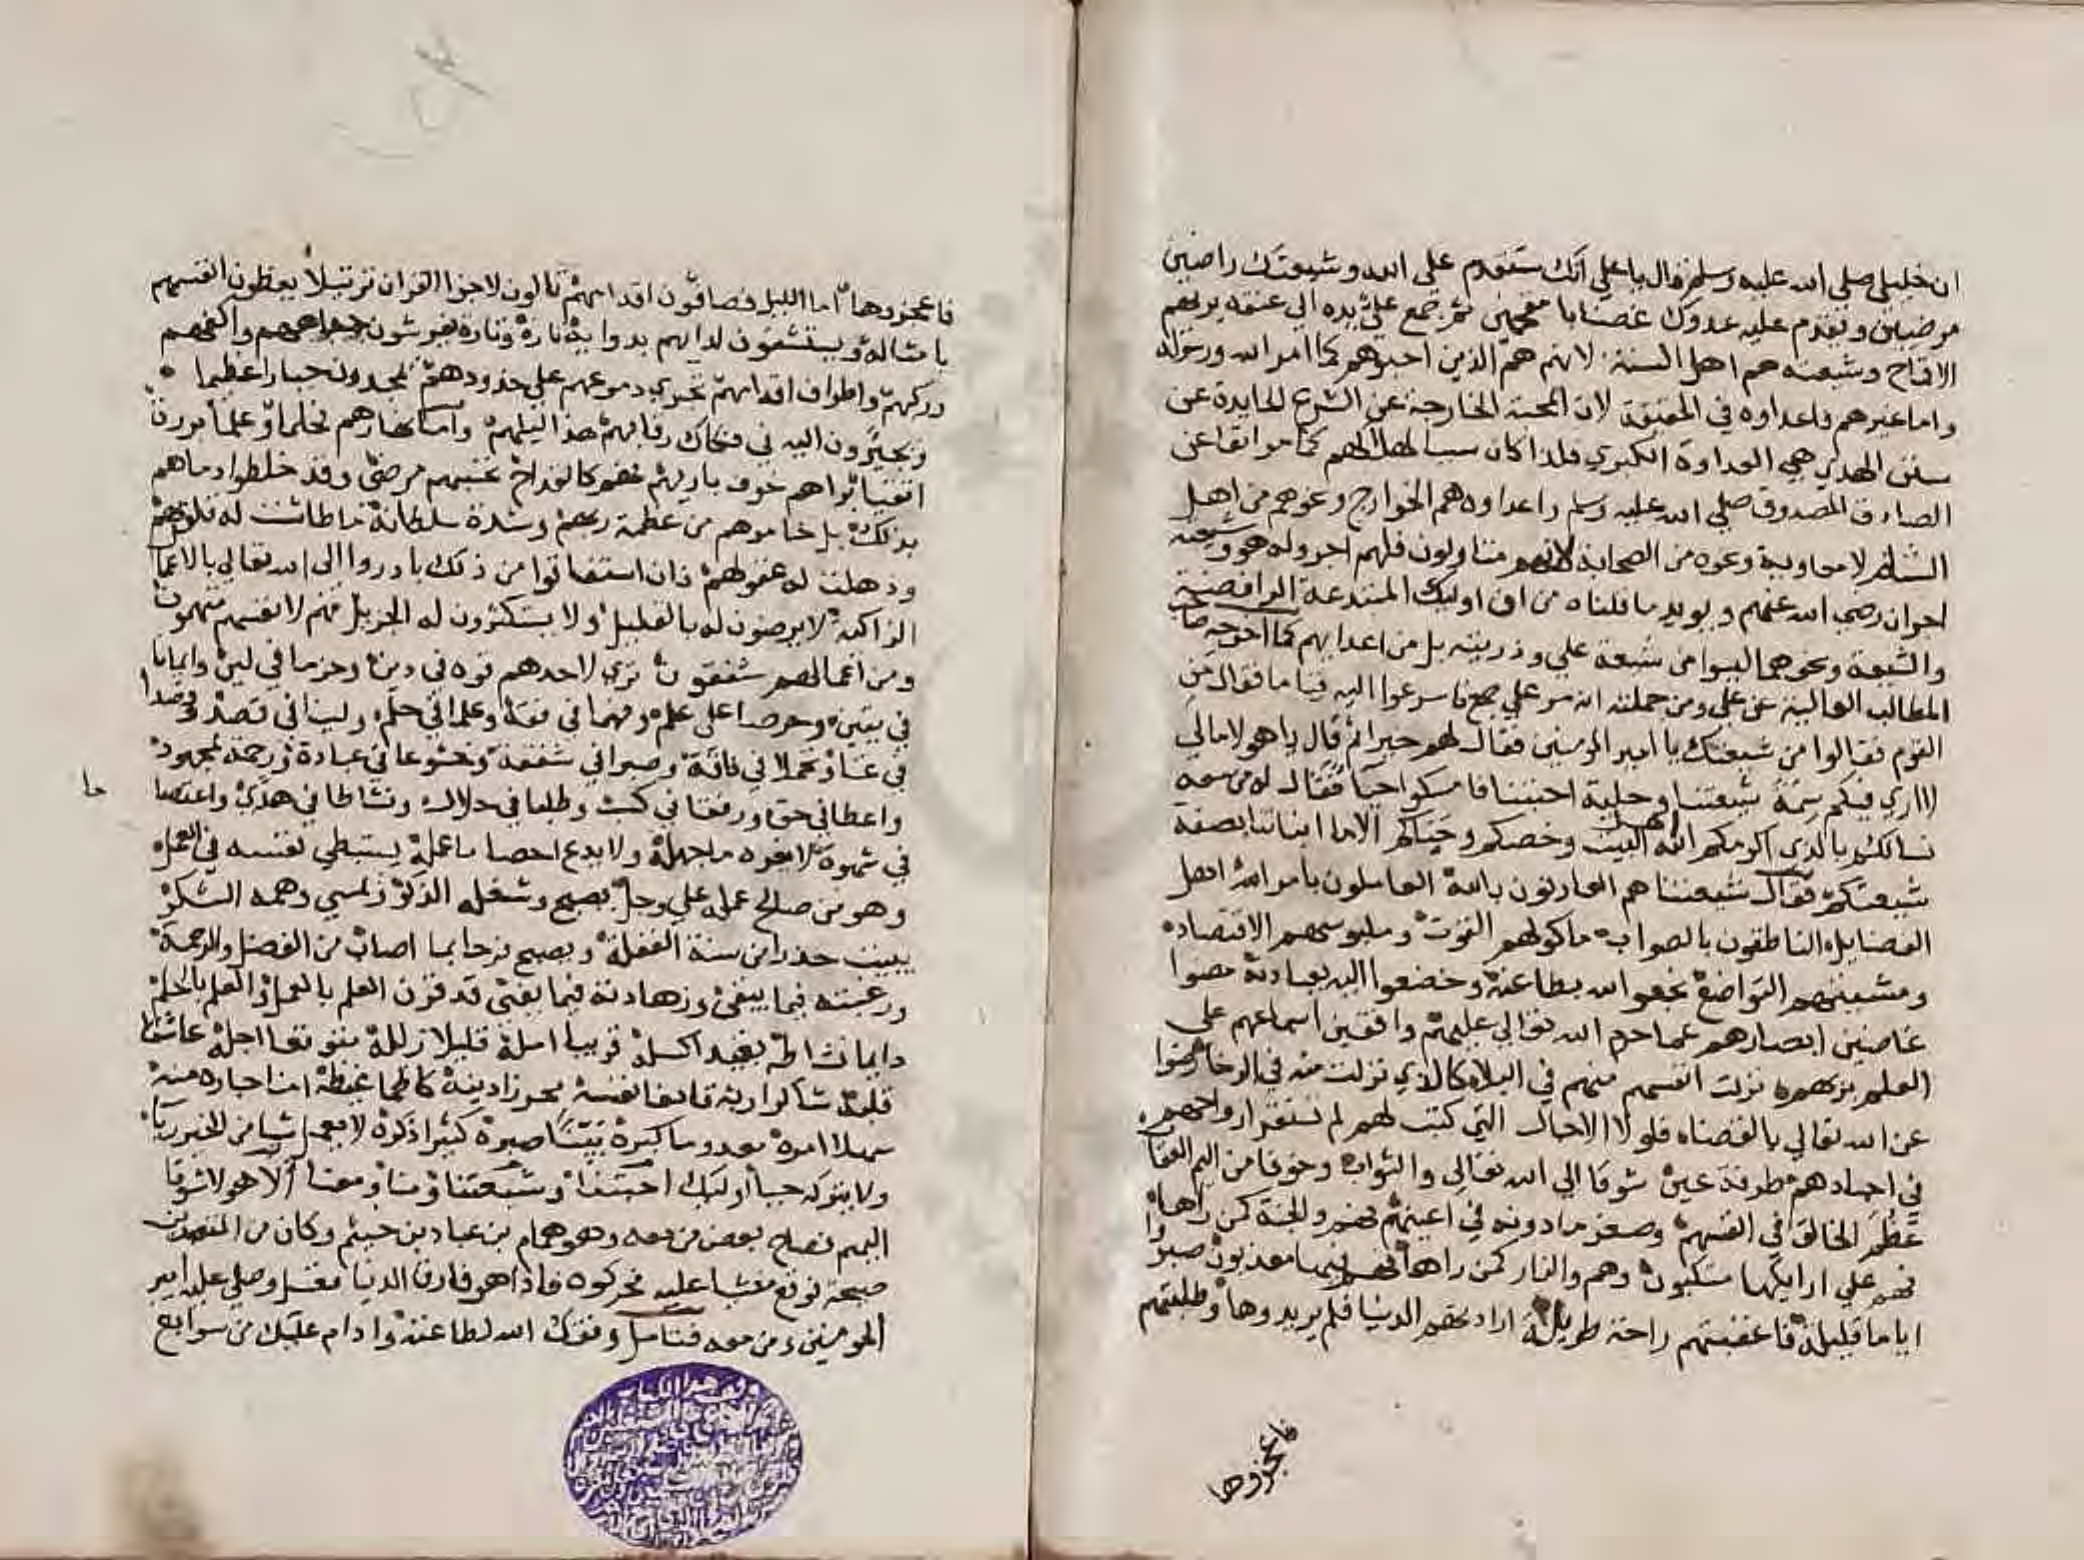 ان خليلي صلى الله عليه وسلم قال يا علي انك ستقدم على الله وشيعتك راضين
مرضيين ويقدم عليه عدوك غضابا مقمحين ثم جمع علي يده الى عنقه يريهم
الاقماح وشيعته هم اهل السنة لانهم هم الذين احبوهم كما امر الله ورسوله
واما غيرهم فاعداوه في الحقيقة لان المحبة الخارجة عن الشرع الحايدة عن
سنن الهدي هي العداوة الكبري فلذا كان سببا لهلاكهم كما مر انفا عن
الصادق المصدوق صلى الله عليه وسلم واعداوه هم الخوارج ونحوهم من اهل
الشام لا معاوية ونحوه من الصحابة لانهم متاولون فلهم اجر وله هو وشيعته
اجران رضي الله عنهم ويويد ما قلناه من ان اوليك المبتدعة الرافضية
والشيعة ونحوهما ليسوا من شيعة علي وذريته بل من اعدايهم كما اخرجه صاحب
المطالب العالية عن علي ومن جملته انه مر على جمع فاسرعوا اليه قياما فقال من
القوم فقالوا من شيعتك يا امير المومنين فقال لهم خيرا ثم قال يا هولا مالي
لا اري فيكم سمة شيعتنا وحلية احبتنا فامسكوا حيا فقال له من معه
نسالك بالذي اكرمكم اهل البيت وخصكم وحباكم الا ما انباتنا بصفة
شيعتكم فقال شيعتنا هم العارفون بالله العاملون بامر الله اهل
الفضايل الناطقون بالصواب ماكولهم القوت وملبوسهم الاقتصاد
ومشيتهم التواضع نجعوا لله بطاعته وخضعوا اليه بعبادته مضوا
غاضين ابصارهم عما حرم الله تعالى عليهم واقفين اسماعهم على
العلم بربهم نزلت انفسهم منهم في البلاء كالذي نزلت منه في الرخا رضوا
عن الله تعالى بالقضاء فلولا الاجال التي كتب لهم لم تستقر ارواحهم
في اجسادهم طرفة عين شوقا الى الله تعالى والثواب وخوفا من اليم العقاب
عظم الخالق في انفسهم وصغر ما دونه في اعينهم فهم والجنة كمن راها
فهم على ارايكها متكيون وهم والنار كمن راها فهم فيها معذبون صبروا
اياما قليلة فاعقبتهم راحة طويلة ارادتهم الدنيا فلم يريدوها وطلبتهم
فاعجزوها
فاعجزوها اما الليل فصافون اقدامهم تالون لاجزا القران ترتيلا يعظون انفسهم
بامثاله ويستشفون لدايهم بدوايه تارة وتارة يفترشون جباههم واكفهم
وركبهم واطراف اقدامهم تجري دموعهم على خدودهم يمجدون جبارا عظيما
ويجيرون اليه في فكاك رقابهم هذا ليلهم واما نهارهم فحلما علما بررة
اتقيا براهم خوف باريهم فهم كالقداح تحسبهم مرضى وقد خلطوا وما هم
بذلك بل خامرهم من عظمة ربهم وشدة سلطانه ما طاشت له قلوبهم
وذهلت له عقولهم فاذا استفاقوا من ذلك بادروا الى الله تعالى بالاعمال
الزاكية لا يرضون له بالقليل ولا يستكثرون له الجزيل فهم لانفسهم متهمون
ومن اعمالهم مشفقون تري لاحدهم قوة في دين وحزما في لين وايمانا
في يقين وحرصا على علم وفهما في فقه وعلما في حلم ولينا في قصد وقصدا
في غنا وتجملا في فاقة وصبرا في شفقة وخشوعا في عبادة ورحمة لمجهود
واعطا في حق ورفقا في كسب وطلبا في حلال ونشاطا في هدي واعتصاما
في شهوة لا يغره ما جهله ولا يدع احصا ما عمله يستبطي نفسه في العمل
وهو من صالح عمله على وجل يصبح وشغله الذكر ويمسي وهمه الشكر
يبيت حذرا من سنة الغفلة ويصبح فرحا بما اصاب من الفضل والرحمة
ورغبته فيما يبقى وزهادته فيما يفنى قد قرن العلم بالعمل والعلم بالحلم
دايما نشاطه بعيدا كسله قريبا امله قليلا زلله متوقعا اجله عاشقا
قلبه شاكرا ربه قانعا نفسه محرزا دينه كاظما غيظه امنا جاره منه
سهلا امره معدوما كبره بينا صبره كثيرا ذكره لا يعمل شيا من الخير ريا
ولا يتركه حيا اوليك احبتنا وشيعتنا ومنا ومعنا الا هولا شوقا
اليهم فصاح بعض من معه وهو همام بن عباد بن خيثم وكان من المتعبدين
صيحة فوقع مغشيا عليه فحركوه فاذا هو فارق الدنيا فغسل وصلى عليه امير
المومنين ومن معه فتامل وفقك الله لطاعته وادام عليك من سوابغ